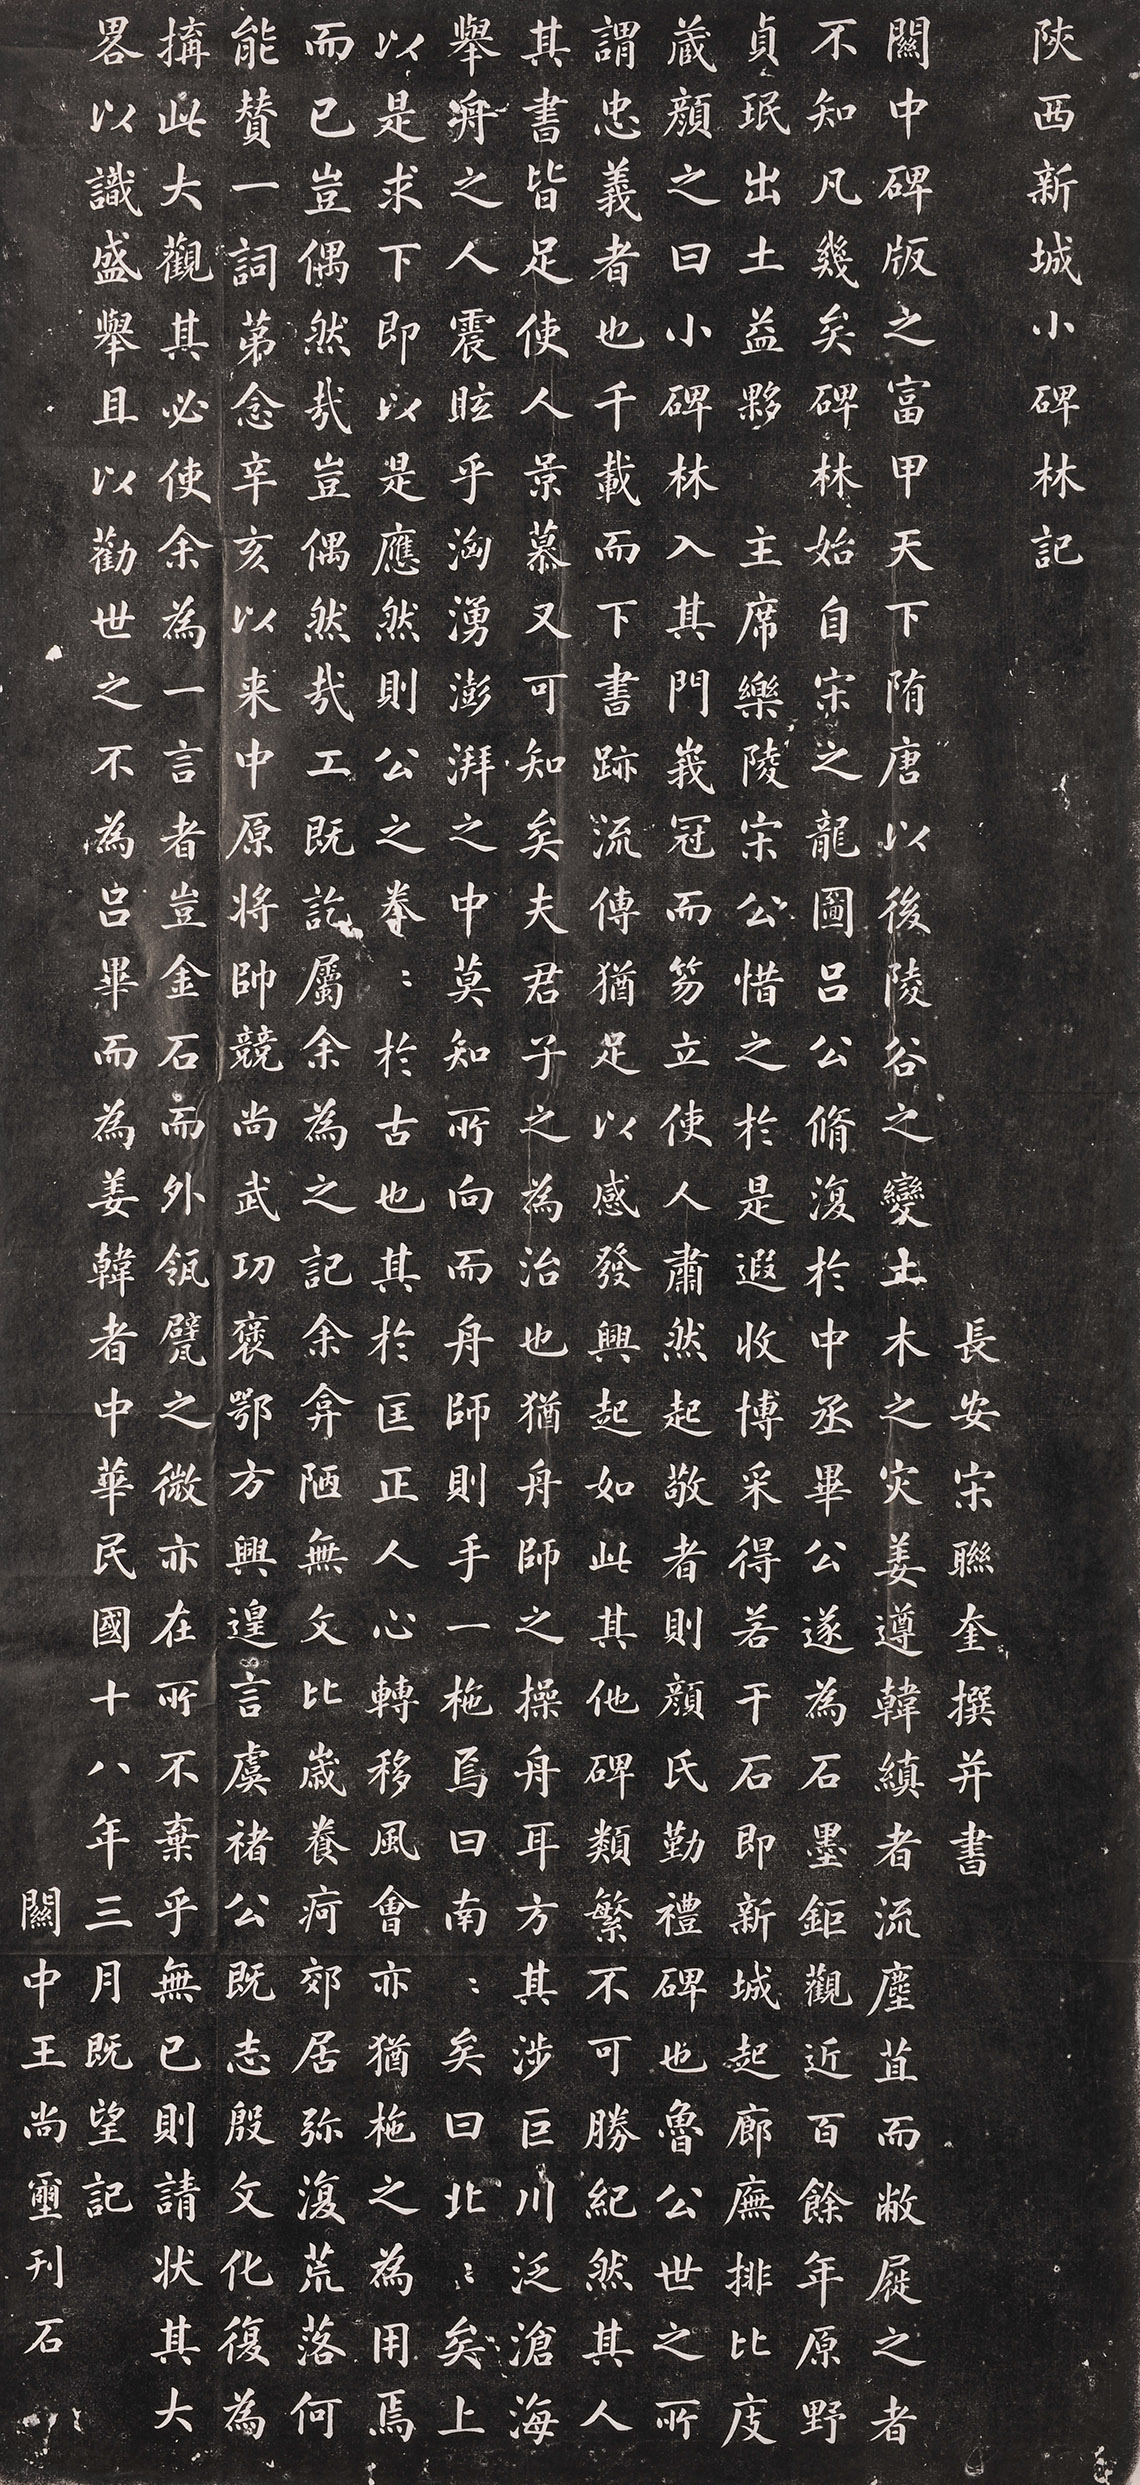 陝西新城小碑林記
長安宋聯奎撰并書
關中碑版之富甲天下隋唐以後陵谷之變土木之灾姜遵韓縝者流塵苴而敝屣之者
不知凡幾矣碑林始自宋之龍圖呂公脩復於中丞畢公遂為石墨鉅觀近百餘年原野
貞珉出土益夥　主席樂陵宋公惜之於是遐收博采得若干石即新城起廊廡排比庋
蔵顔之曰小碑林入其門峩冠而笏立使人肅然起敬者則顔氏勤禮碑也魯公世之所
謂忠義者也千載而下書跡流傳猶足以感發興起如此其他碑類繁不可勝紀然其人
其書皆足使人景慕又可知矣夫君子之為治也猶舟師之操舟耳方其涉巨川泛滄海
舉舟之人震眩乎洶湧澎湃之中莫知所向而舟師則手一柂焉曰南:矣曰北:矣上
以是求下即以是應然則公之拳:於古也其於匡正人心轉移風會亦猶柂之為用焉
而已豈偶然㦲豈偶然㦲工既訖屬余為之記余弇陋無文比歲養疴郊居弥復荒落何
能賛一詞苐念辛亥以来中原将帥競尚武功褒鄂方興遑言虞褚公既志殷文化復為
搆此大觀其必使余為一言者豈金石而外瓴甓之微亦在所不棄乎無已則請状其大
畧以識盛舉且以勸世之不為呂畢而為姜韓者中華民國十八年三月既望記
關中王尚璽刊石